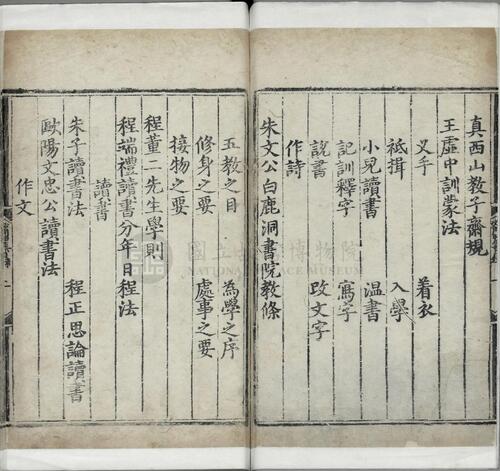 真西山教子齋規
王虛中訓蒙法
叉手 着衣
祗揖 入學
小兒讀書 温書
記訓釋字 寫字
說書 改文字
作詩
朱文公白鹿洞書院教條
五教之目 為學之序
修身之要 處事之要
接物之要
程董二先生學則
程端禮讀書分年日程法
讀書
朱子讀書法 程正思論讀書
歐陽文忠公讀書法
作文
國立故宮博物院
NATIONAL PALACE MUSEUM